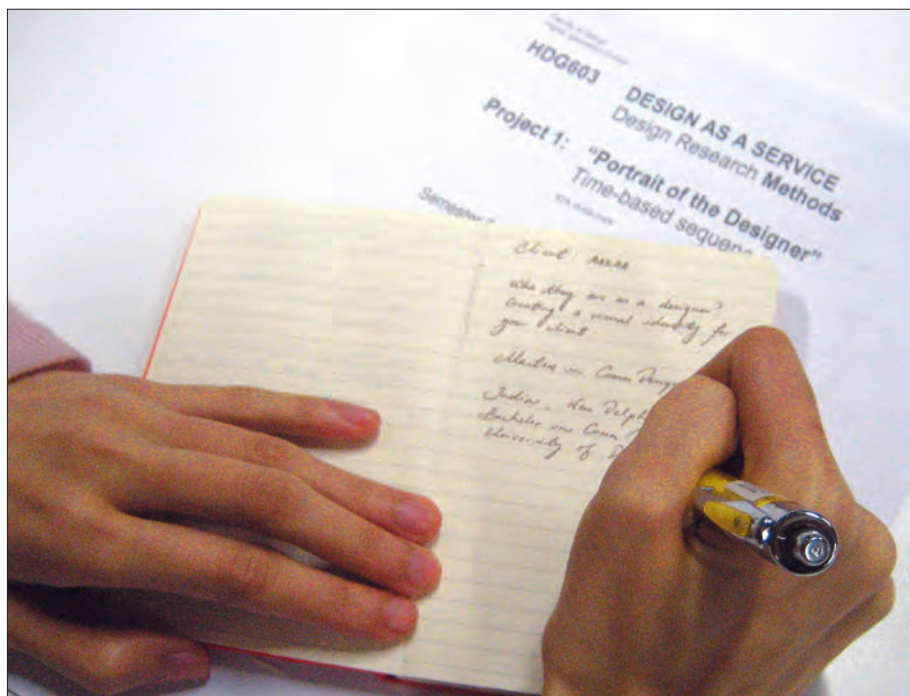 HDG603
DESIGN AS A SERVICE
Design Research Methods
Project 1:
"Portrait of the Designer"
Time-based sequenc
Semester
Client:
who they are as a designer?
Creating a visual identity for
your client
Masters in Comm Design
Indian, New Delh
Bachelor in Comm
University of D